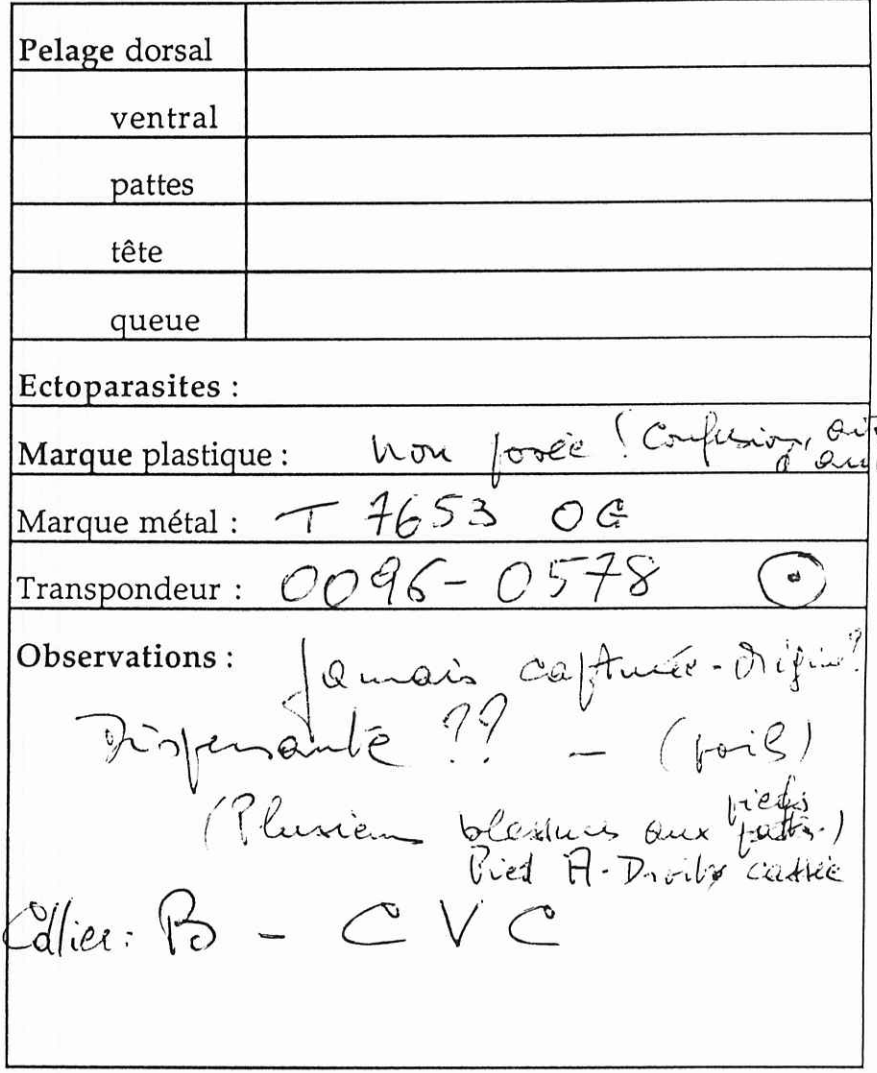 Pelage dorsal
ventral
pattes
tête
queue
Ectoparasites :
Marque plastique : non posée ! Confusion,
Marque métal : T 7653 OG
Transpondeur : 0096-0578
Observations : Jamais capturée - Origine?
Dispersante ?? - (poils)
(Plusieurs blessures aux pieds
pattes.)
Pied A-Droite cassée
Collier : B - C V C